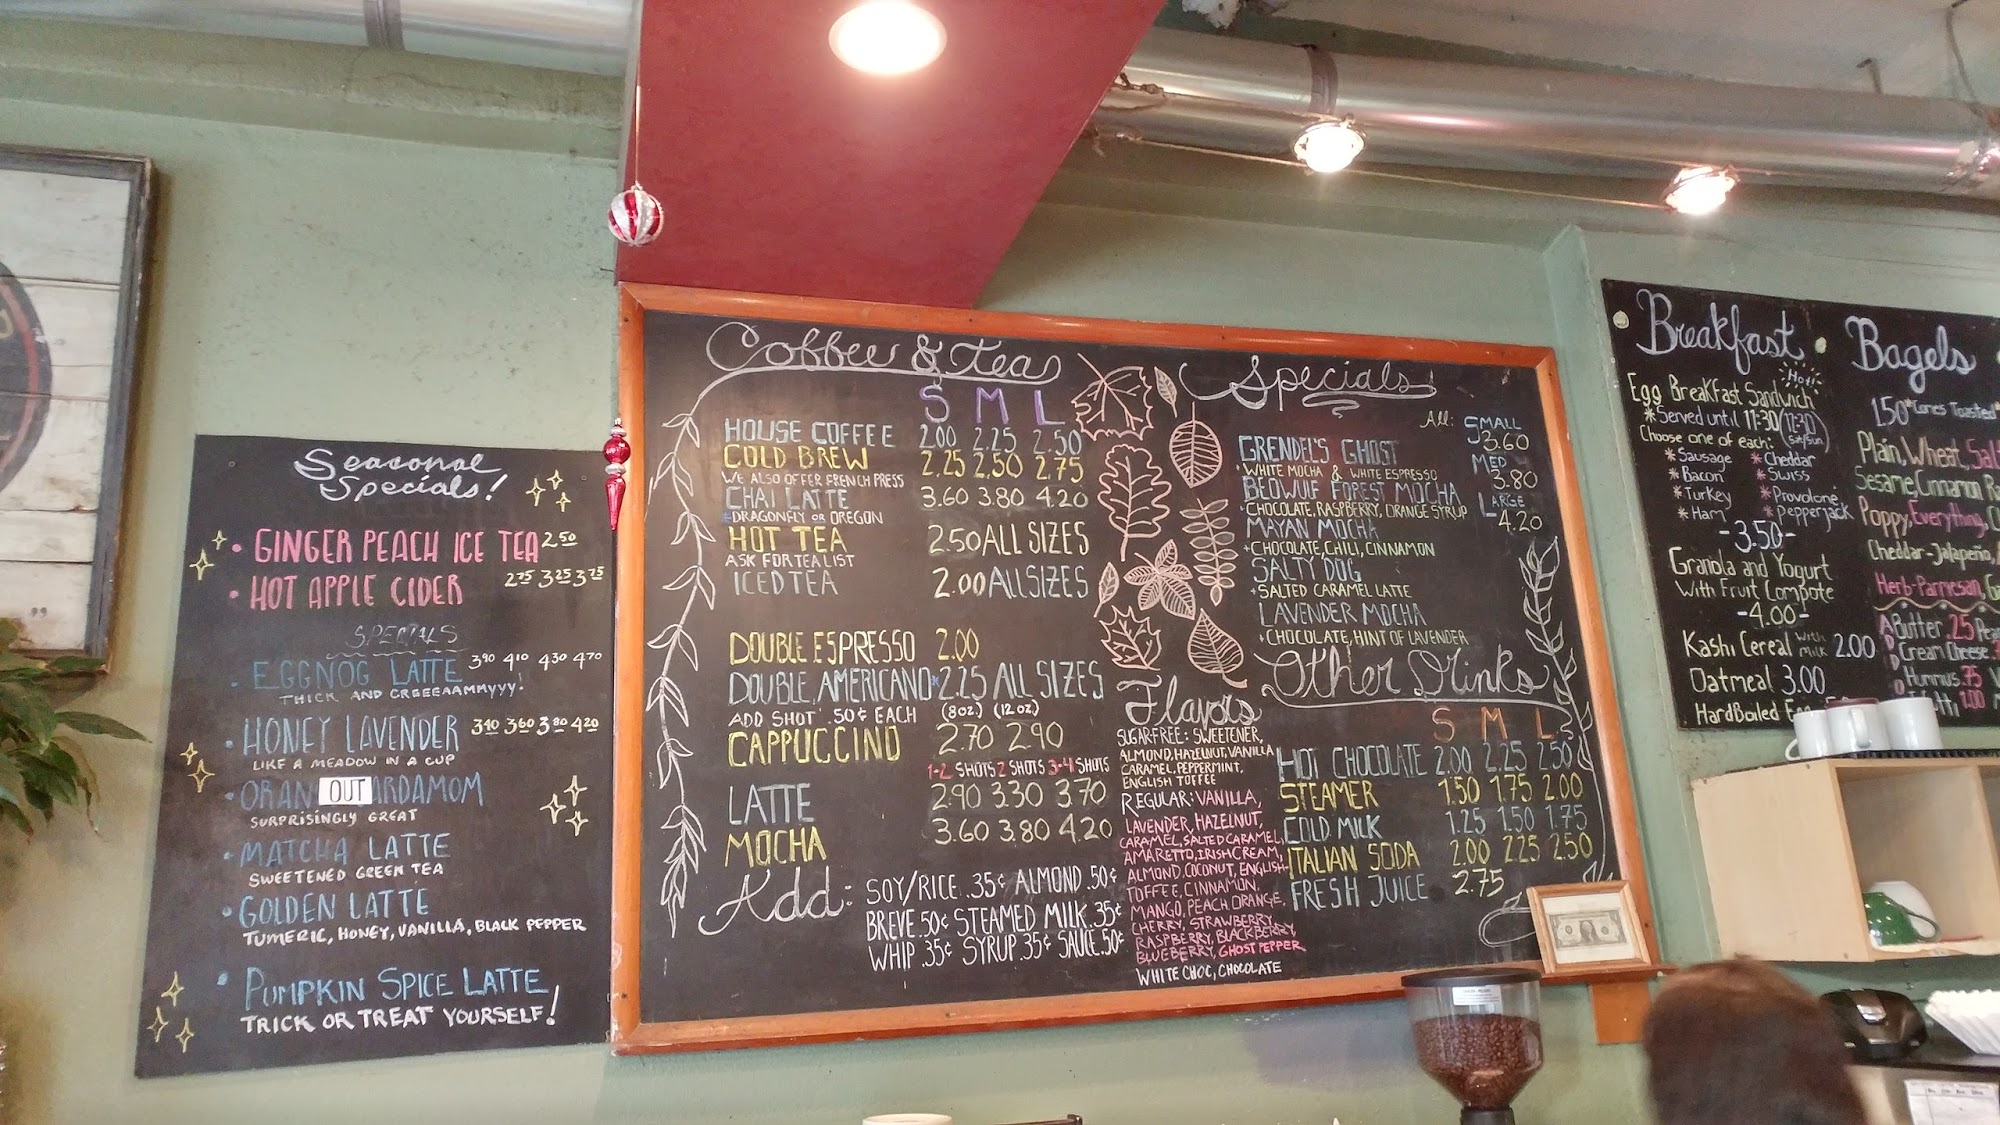 Seasonal
Specials!
• GINGER PEACH ICE TEA 2.50
• HOT APPLE CIDER 2.75 3.25 3.75
SPECIALS
• EGGNOG LATTE 3.90 4.10 4.30 4.70
THICK AND CREEEAAMMYYY!
• HONEY LAVENDER 3.40 3.60 3.80 4.20
LIKE A MEADOW IN A CUP
• ORAN OUT ARDAMOM
SURPRISINGLY GREAT
• MATCHA LATTE
SWEETENED GREEN TEA
• GOLDEN LATTE
TUMERIC, HONEY, VANILLA, BLACK PEPPER
• PUMPKIN SPICE LATTE
TRICK OR TREAT YOURSELF!
Coffee & Tea
S M L
HOUSE COFFEE 2.00 2.25 2.50
COLD BREW 2.25 2.50 2.75
WE ALSO OFFER FRENCH PRESS
CHAI LATTE 3.60 3.80 4.20
*DRAGONFLY OR OREGON
HOT TEA 2.50 ALL SIZES
ASK FOR TEA LIST
ICED TEA 2.00 ALL SIZES
DOUBLE ESPRESSO 2.00
DOUBLE AMERICANO *2.25 ALL SIZES
ADD SHOT .50¢ EACH (8oz.) (12oz.)
CAPPUCCINO 2.70 2.90
1-2 SHOTS 2 SHOTS 3-4 SHOTS
LATTE 2.90 3.30 3.70
MOCHA 3.60 3.80 4.20
Add: SOY/RICE .35¢ ALMOND .50¢
BREVE .50¢ STEAMED MILK .35¢
WHIP .35¢ SYRUP .35¢ SAUCE .50¢
Flavors
SUGAR-FREE: SWEETENER,
ALMOND, HAZELNUT, VANILLA
CARAMEL, PEPPERMINT,
ENGLISH TOFFEE
REGULAR: VANILLA,
LAVENDER, HAZELNUT,
CARAMEL, SALTED CARAMEL,
AMARETTO, IRISH CREAM,
ALMOND, COCONUT, ENGLISH
TOFFEE, CINNAMON,
MANGO, PEACH, ORANGE,
CHERRY, STRAWBERRY,
RASPBERRY, BLACKBERRY,
BLUEBERRY, GHOST PEPPER
WHITE CHOC, CHOCOLATE
Specials
All: SMALL
3.60
MED
3.80
LARGE
4.20
GRENDEL'S GHOST
• WHITE MOCHA & WHITE ESPRESSO
BEOWULF FOREST MOCHA
• CHOCOLATE, RASPBERRY, ORANGE SYRUP
MAYAN MOCHA
• CHOCOLATE, CHILI, CINNAMON
SALTY DOG
• SALTED CARAMEL LATTE
LAVENDER MOCHA
• CHOCOLATE, HINT OF LAVENDER
Other Drinks
S M L
HOT CHOCOLATE 2.00 2.25 2.50
STEAMER 1.50 1.75 2.00
COLD MILK 1.25 1.50 1.75
ITALIAN SODA 2.00 2.25 2.50
FRESH JUICE 2.75
Breakfast
Hot!
Egg Breakfast Sandwich
*Served until 11:30 (12:30 sat/sun)
Choose one of each:
*Sausage *Cheddar
*Bacon *Swiss
*Turkey *Provolone
*Ham *Pepperjack
-3.50-
Granola and Yogurt
With Fruit Compote
-4.00-
Kashi Cereal with milk 2.00
Oatmeal 3.00
HardBoiled
Bagels
1.50 *Comes Toasted*
Plain, Wheat,
Sesame, Cinnamon
Poppy, Everything,
Cheddar-Jalapeño,
Herb-Parmesan,
ADD
Butter .25
Cream Cheese
Hummus .75
1.00